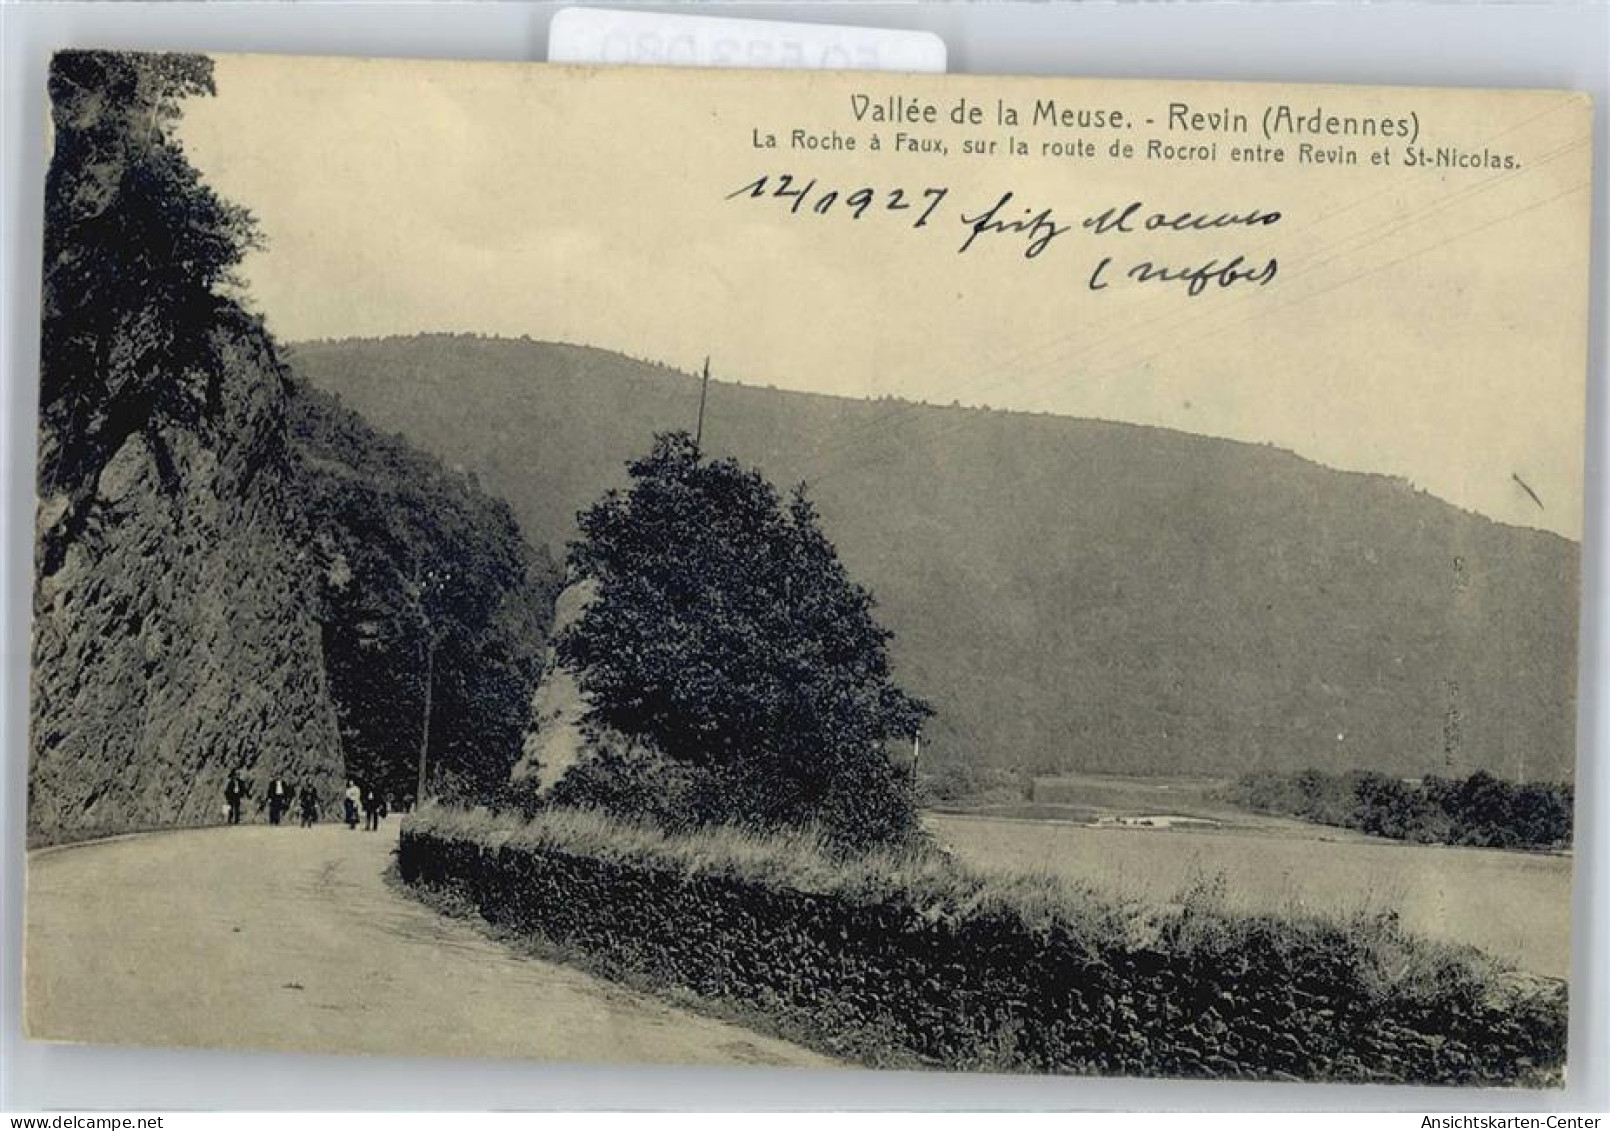 Vallée de la Meuse. - Revin (Ardennes)
La Roche à Faux, sur la route de Rocroi entre Revin et St-Nicolas.
12/1927 fritz
Ansichtskarten-Center